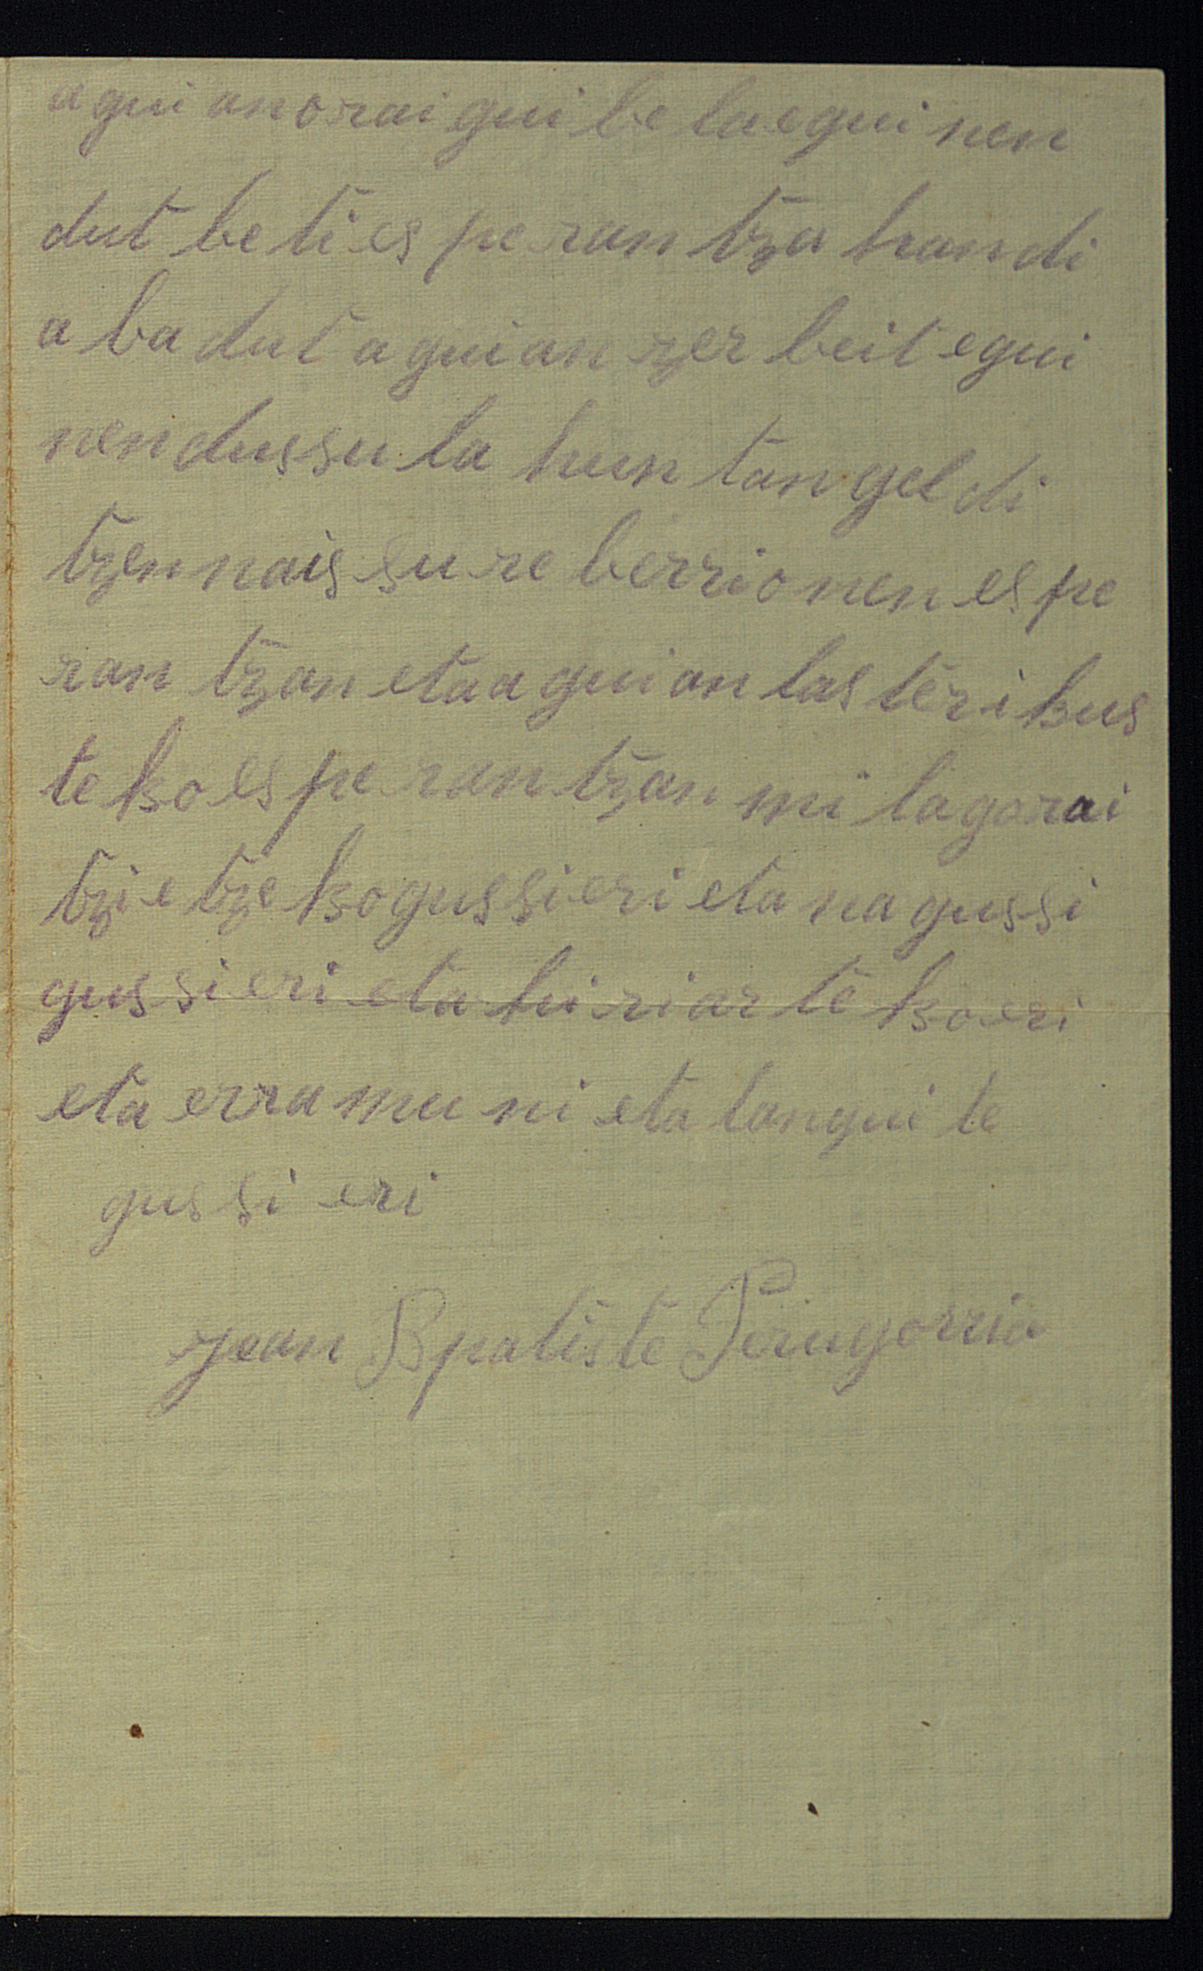 agui anorai gui be la egui nen
dut be ti es pe ran tza handi
a ba dut a guian zer beit egui
nen dussu la hun tan gel di
tzen nais su re berrio nen es pe
ran tzan eta a gui an las ter i kus
te ko es pe ran tzan mi la gorai
tzi e tze ko gussi eri eta na gussi
gus si eri eta hi ri ar te ko eri
eta erra mu ni eta langui le
gus si eri
jean Bpatiste Perugorria